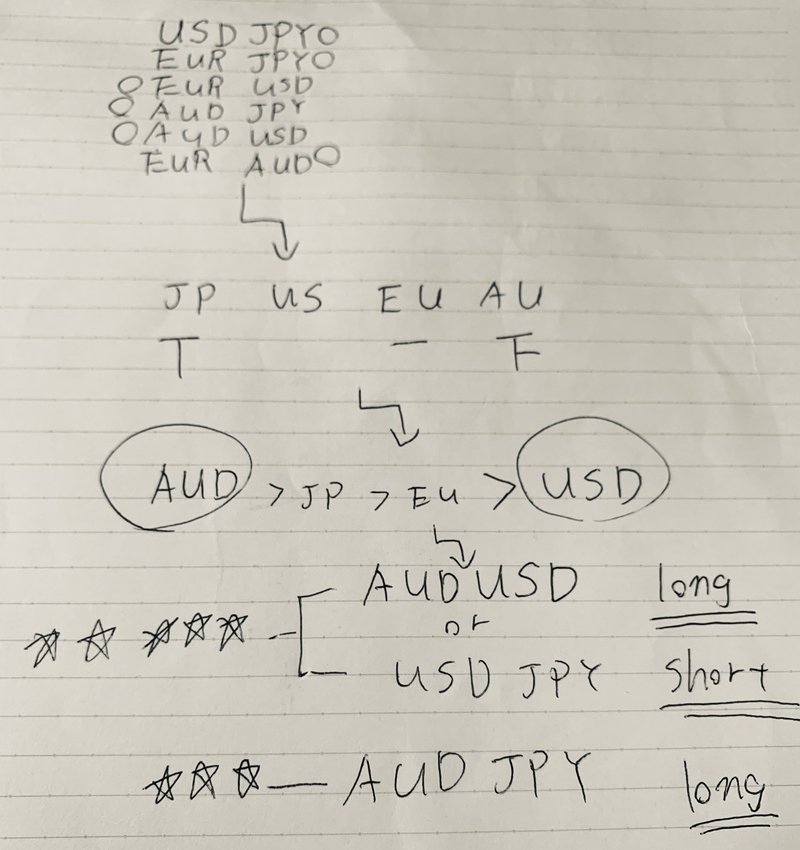 USD JPY○
EUR JPY○
○ EUR USD
○ AUD JPY
○ AUD USD
EUR AUD○
JP US EU AU
T 一 下
AUD > JP > EU > USD
AUDUSD long
or
☆☆☆☆☆ USD JPY short
☆☆☆ — AUD JPY long